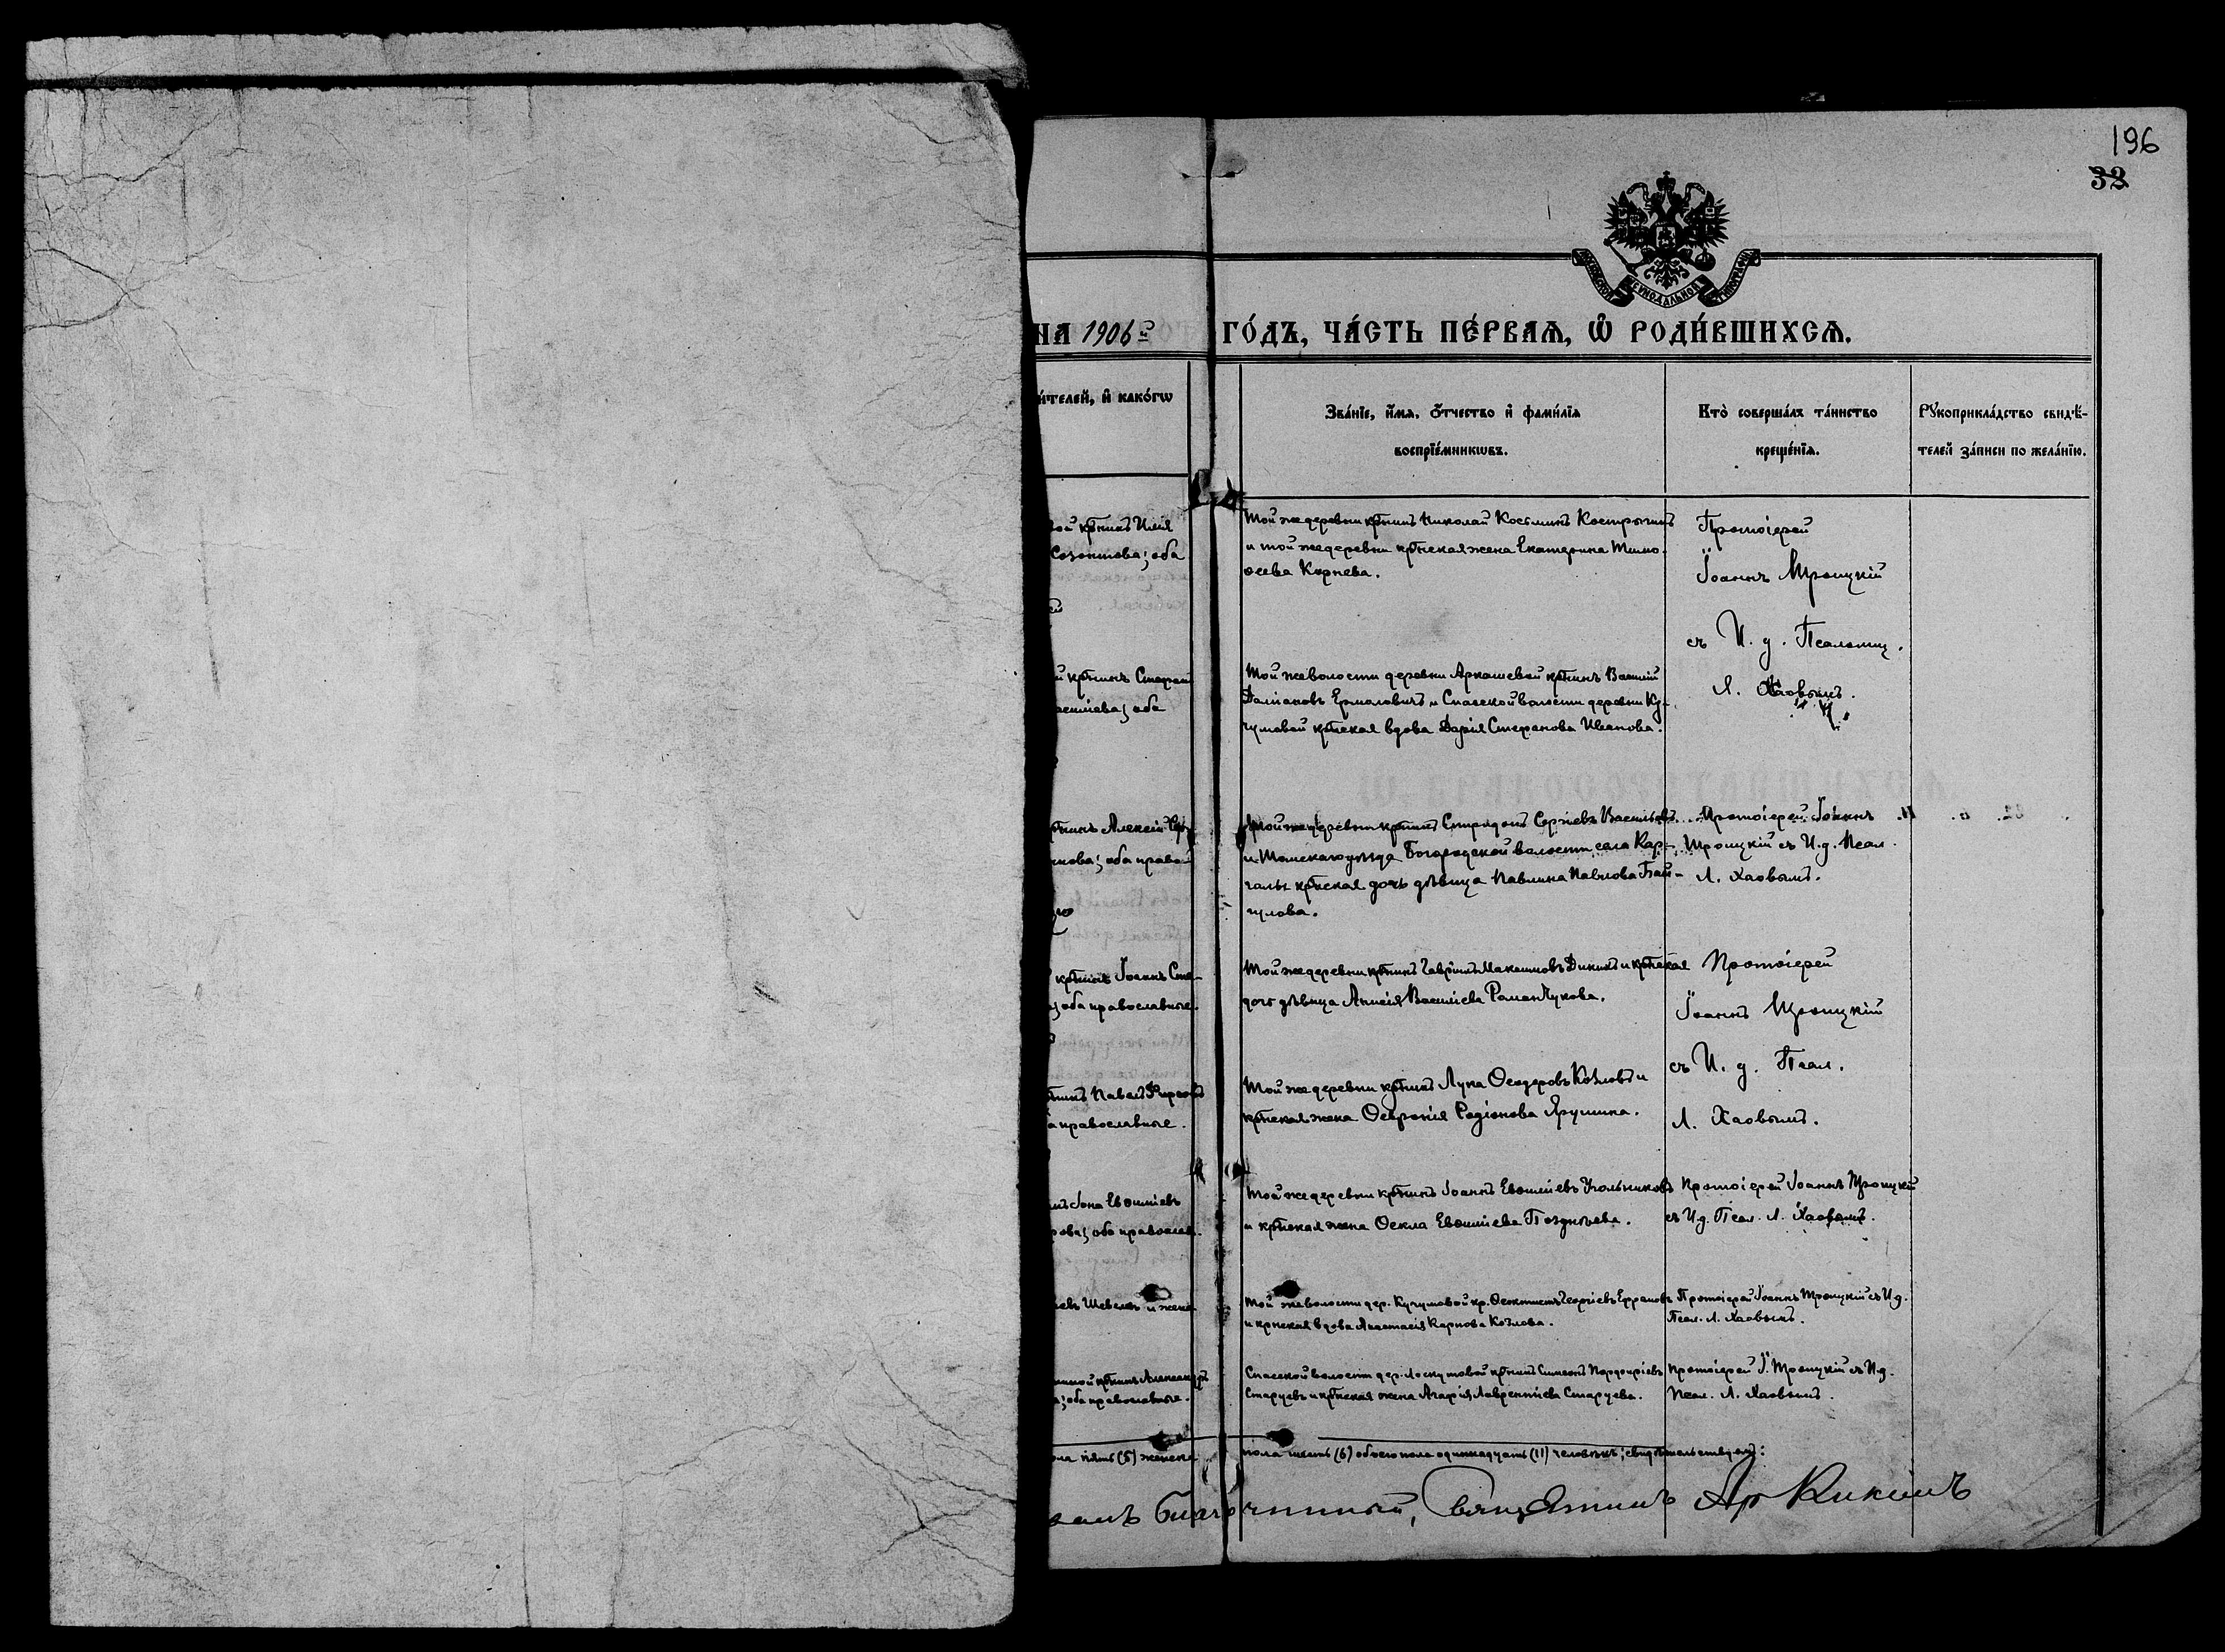 196
32
МОСКОВСКОЙ СѴНОДАЛЬНОЙ ТИПОГРАФІИ
НА 1906й ГО́ДЪ, ЧА́СТЬ ПЕ́РВАѦ, Ѿ РОДИ́ВШИХСѦ.
и́телей, и҆ како́гѡ
Зва́нїе, и҆́мѧ, ѻ҆́тчество и҆ фами́лїѧ
воспрїе́мникѡвъ.
Кто̀ соверша́лъ та́инство
креще́нїѧ.
Рꙋкоприкла́дство свидѣ́-
телей за́писи по жела́нїю.
вой крѣнинъ Илія
Созонтова; оба
Той же деревни крѣнинъ Николай Косминъ Костринъ
и той же деревни крѣнская жена Екатерина Тимо-
ѳеева Корнева.
Протоіерей
Іоаннъ Троицкій
съ И. д. Псаломщ.
Л. Хаовымъ.
й крѣнинъ Стефан
асиліева; оба
Той же волости деревни Аркашевой крѣнинъ Василій
Даміановъ Ермоловичъ и Спасской волости деревни Ку-
чумовой крѣнская вдова Дарія Стефанова Иванова.
крѣнинъ Алексій Сер
нкова; оба правосл
Той же деревни крѣнинъ Спиридонъ Сергіевъ Васильевъ
и Томскаго уѣзда Богородской волости села Кар-
галы крѣнская дочь дѣвица Павлина Павлова Бай-
гулова.
Протоіерей Іоаннъ
Троицкій съ И. д. Псал.
Л. Хаовымъ.
крѣнинъ Іоаннъ Сте-
; оба православные.
Той же деревни крѣнинъ Гавріилъ Максимовъ Дикинъ и крѣнская
дочь дѣвица Анисія Василіева Романчукова.
Протоіерей
Іоаннъ Троицкій
съ И. д. Псал.
Л. Хаовымъ.
нинъ Павелъ Фирсовъ
а православные.
Той же деревни крѣнинъ Лука Ѳеодоровъ Козловъ и
крѣнская жена Ѳеѵронія Родіонова Ярушина.
Іона Евѳиміевъ
рова; оба православ.
Той же деревни крѣнинъ Іоаннъ Евѳиміевъ Угольниковъ
и крѣнская жена Ѳекла Евѳиміева Позднѣева.
Протоіерей Іоаннъ Троицкій
съ И.д. Псал. Л. Хаовымъ.
евъ Шевелевъ и жена
Той же волости дер. Кучумовой кр. Ѳеоктистъ Георгіевъ Ефрановъ
и крѣнская вдова Анастасія Карпова Козлова.
Протоіерей Іоаннъ Троицкій съ И.д.
Псал. Л. Хаовымъ.
крѣнинъ Александръ
; оба православные.
Спасской волости дер. Лоскутовой крѣнинъ Симеонъ Порфиріевъ
Старуевъ и крѣнская жена Агарія Лаврентіева Старуева.
Протоіерей І. Троицкій съ И.д.
Псал. Л. Хаовымъ.
ола пять (5) женска пола шесть (6) обоего пола одиннадцать (11) человѣкъ; свидѣтельствуемъ:
Благочинный, Священникъ Ар Кикинъ